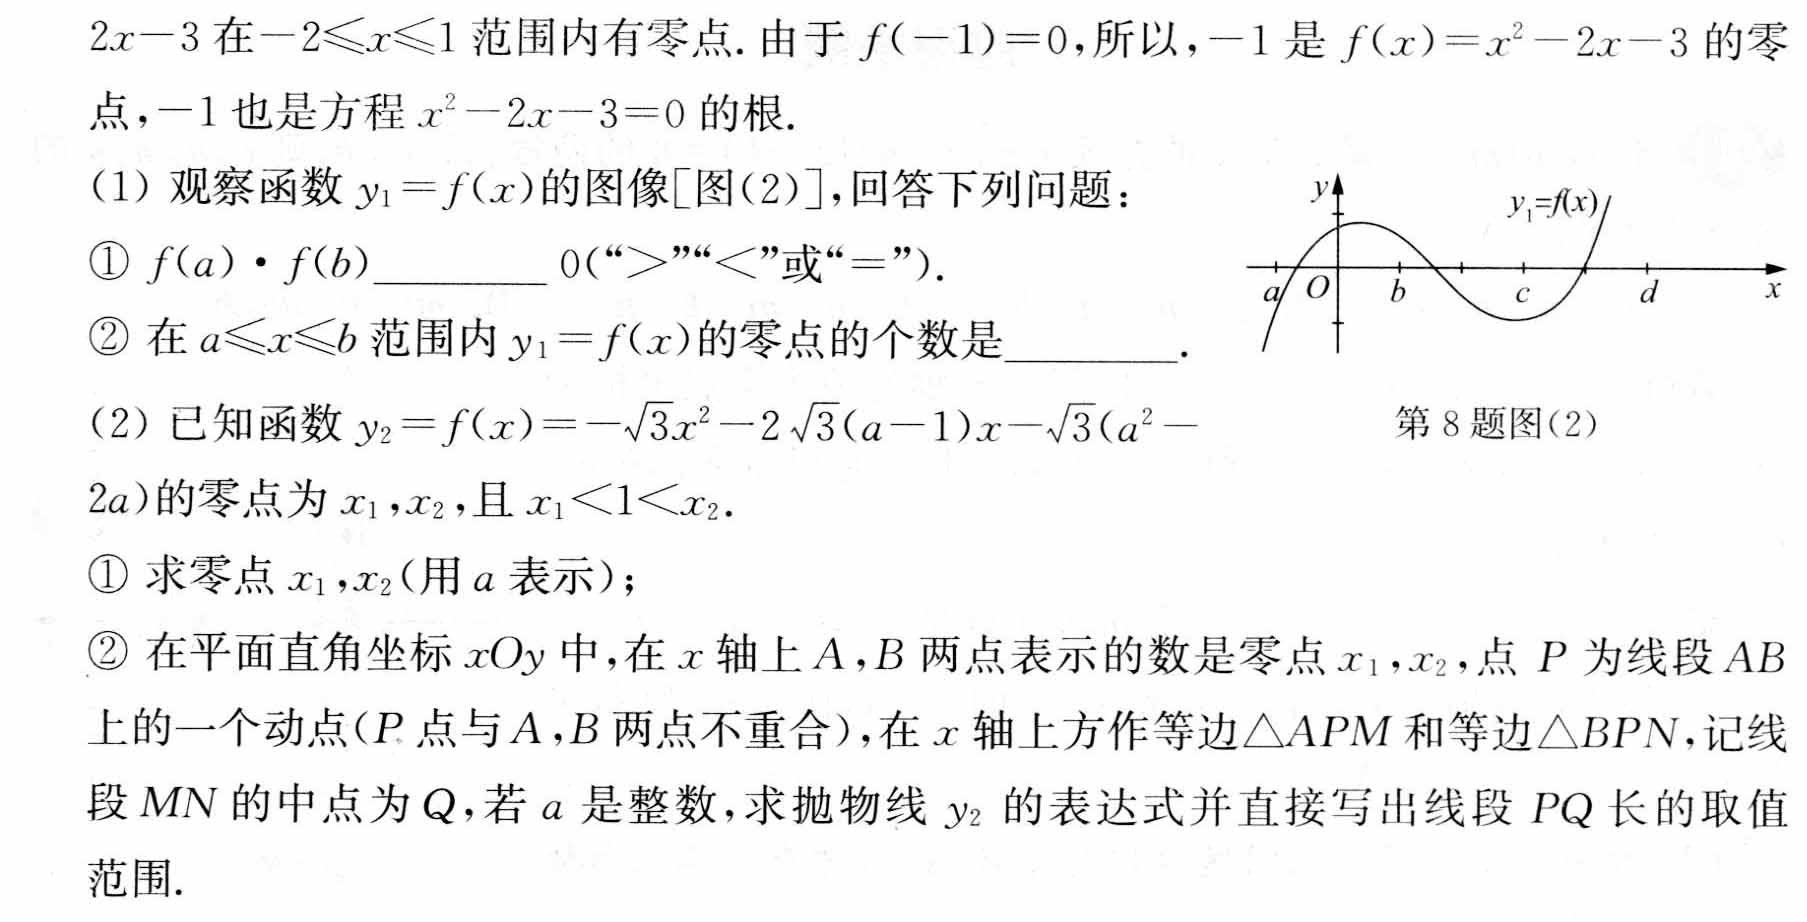 2x−3在−2⩽x⩽1范围内有零点.由于f(−1)=0,所以,−1是f(x)=x²−2x−3的零
点,−1也是方程x²−2x−3=0的根.
(1) 观察函数y₁=f(x)的图像[图(2)],回答下列问题:
① f(a)·f(b)________ 0(“>”“<”或“=”).
② 在a⩽x⩽b范围内y₁=f(x)的零点的个数是________.
y
y₁=f(x)
a O b c d x
第8题图(2)
(2) 已知函数y₂=f(x)=−√3x²−2√3(a−1)x−√3(a²−
2a)的零点为x₁,x₂,且x₁<1<x₂.
① 求零点x₁,x₂(用a表示);
② 在平面直角坐标xOy中,在x轴上A,B两点表示的数是零点x₁,x₂,点P为线段AB
上的一个动点(P点与A,B两点不重合),在x轴上方作等边△APM和等边△BPN,记线
段MN的中点为Q,若a是整数,求抛物线y₂的表达式并直接写出线段PQ长的取值
范围.